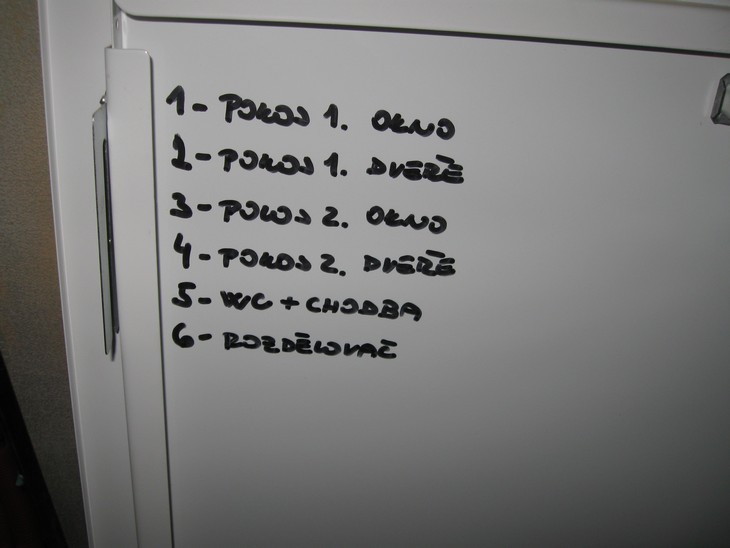 1- POKOJ 1. OKNO
2- POKOJ 1. DVEŘE
3- POKOJ 2. OKNO
4- POKOJ 2. DVEŘE
5- WC + CHODBA
6- ROZDĚLOVAČ